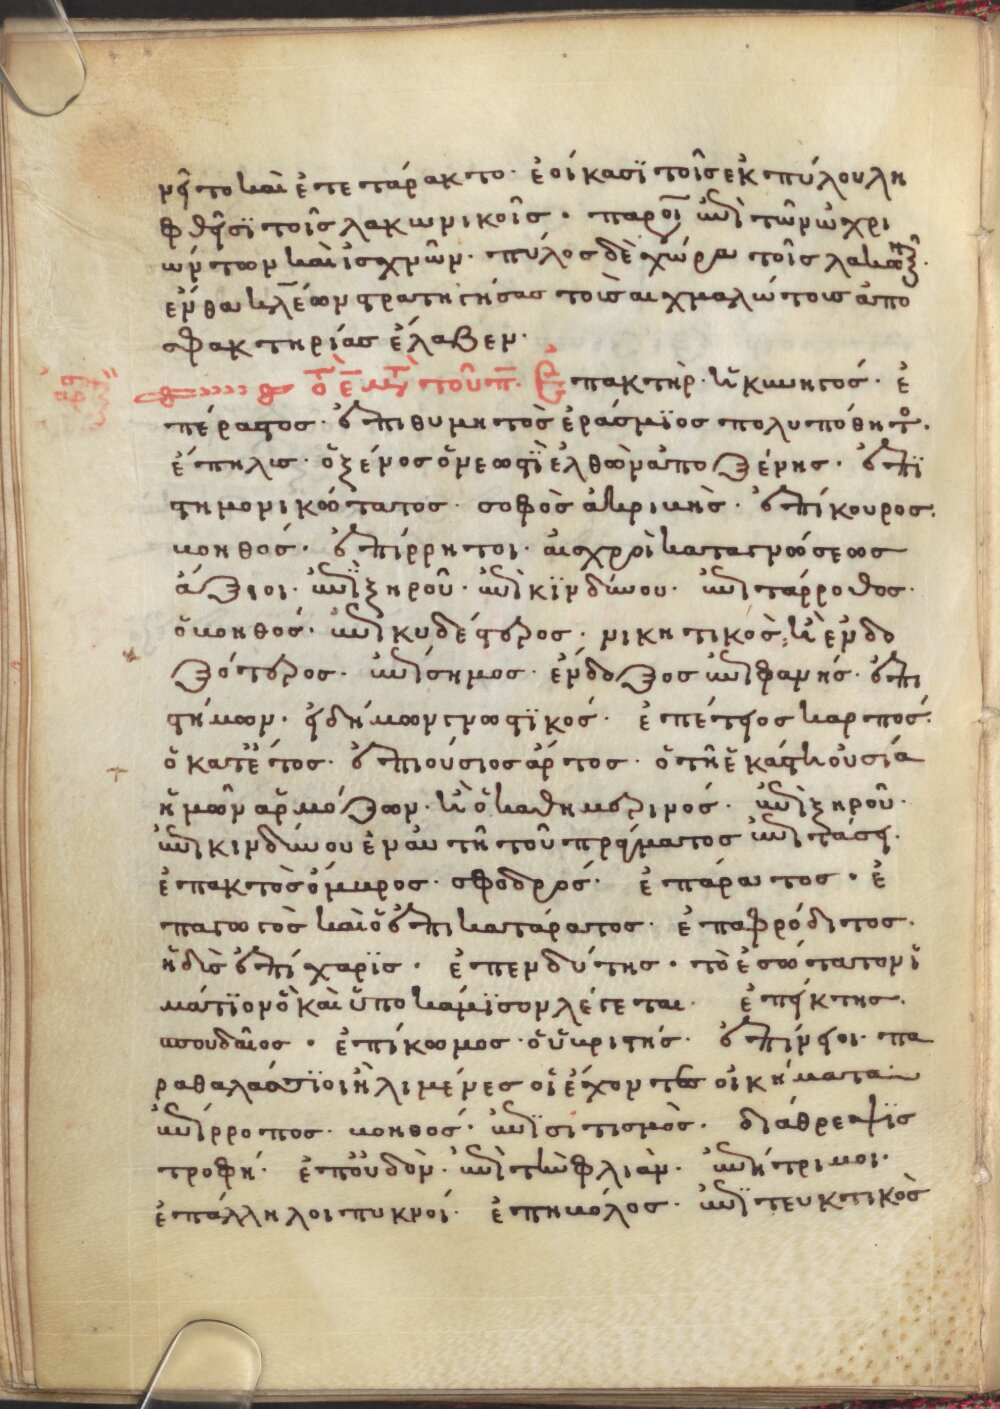 ρητο και ετετάρακτο· ἐοίκασϊ τοῖς ἐκ πύλου λη
φθῆσϊ τοῖς λακωνικοῖς· παροι ἐπὶ τῶν ὠχρι
ώντων και ισχνῶν· πύλος δὲ χώρα τοῖς
ἔνθα κλέων στρατηγήσας τοῖς αιχμαλώτοις ἀπο
σφακτηρίας ἔλαβεν·
τὸ ε μετὰ τοῦ π· Ἐπακτὴρ· κυνηγός· ἐ
πέραστος· ἐπιθυμητὸς ἐράσμϊος πολυπόθητος·
ἔπηλις· ὁ ξένος ὁ νεωστὶ ἐλθὼν ἀπο ξένης· ἐπϊ
στημονικώτατος· σοφὸς ἀκριβὴς· ἐπίκουρος·
βοηθός· ἐπίρρητοι· αἰσχροὶ καταγνώσεως
ἄξιοι· ἐπϊξηροῦ· ἐπὶ κϊνδύνου· ἐπιτάρροθος·
ὁ βοηθός· ἐπικυδέστερος· νικητικὸς· ἢ ἐνδο
ξότερος· ἐπίσημος· ἔνδοξος ἐπιφανής· ἐπι
στήμων· εἰδήμων γνωστϊκός· ἐπέτειος καρπός·
ὁ κατ' ἔτος· ἐπιούσιος ἄρτος· ὁ τῆ ἑκάστη οὐσία
ἡμῶν ἁρμόζων· ἢ ὁ καθημερινός· ἐπὶ ξηροῦ·
ἐπικινδύνου ἐν αὐτῆ τοῦ πράγματος ἐπιτάσει·
ἐπακτὸς ὄμβρος· σφοδρός· ἐπάρατος· ἐ
παγωγὸς και ὁ ἐπικατάρατος· ἐπαφρόδιτος·
ἡδὺς ἐπίχαρϊς· ἐπενδύτης· τὸ ἐσώτατον ἱ
μάτϊον ὃ καὶ ὑποκάμϊσον λέγεται· ἐπείκτης·
σπουδαῖος· ἐπίκωμος· ὁ ὑβριστής· ἐπίνειοι· πα
ραθαλάσσϊοι ἢ λιμένες οἱ ἔχοντες οἰκήματα
ἐπίρροπος· βοηθός· ἐπϊσιτισμὸς· διάθρεψϊς
τροφή· ἐπουδὸν· ἐπὶ τὴν φλιάν· ἐπήτριμοι·
ἐπάλληλοι πυκνοί· ἐπηβόλος· ἐπϊτευκτικὸς